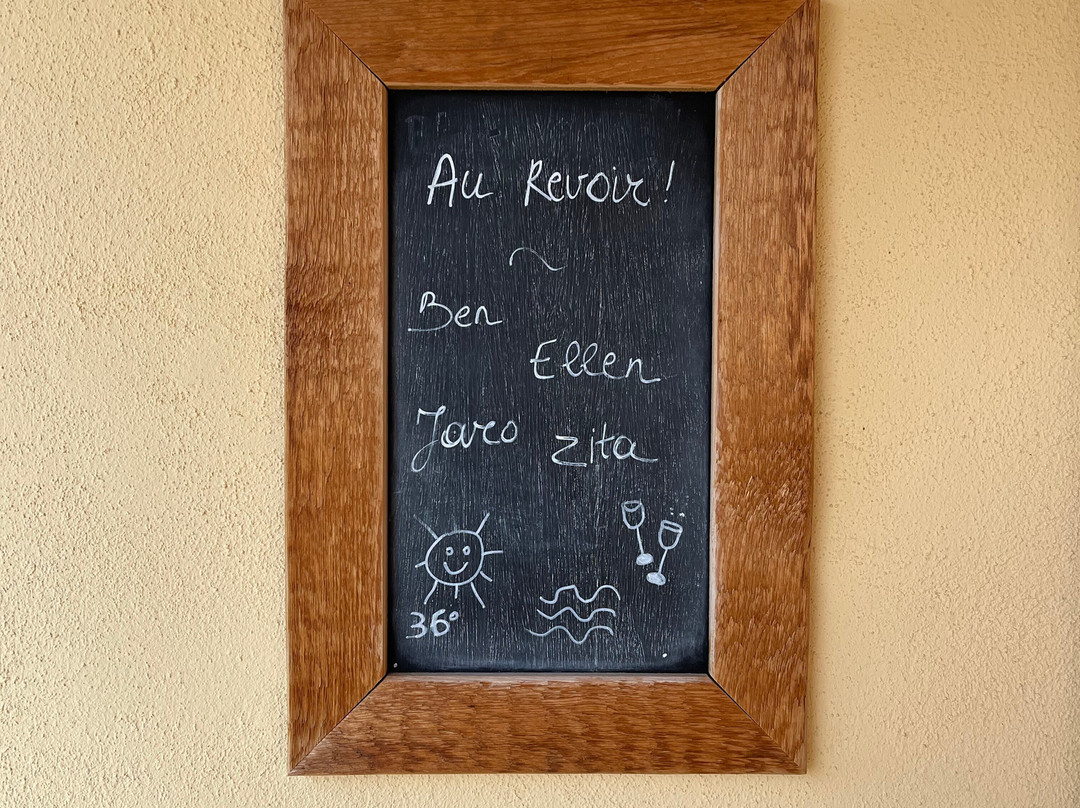 Au Revoir!
~
Ben
Ellen
Jaro
Zita
36°